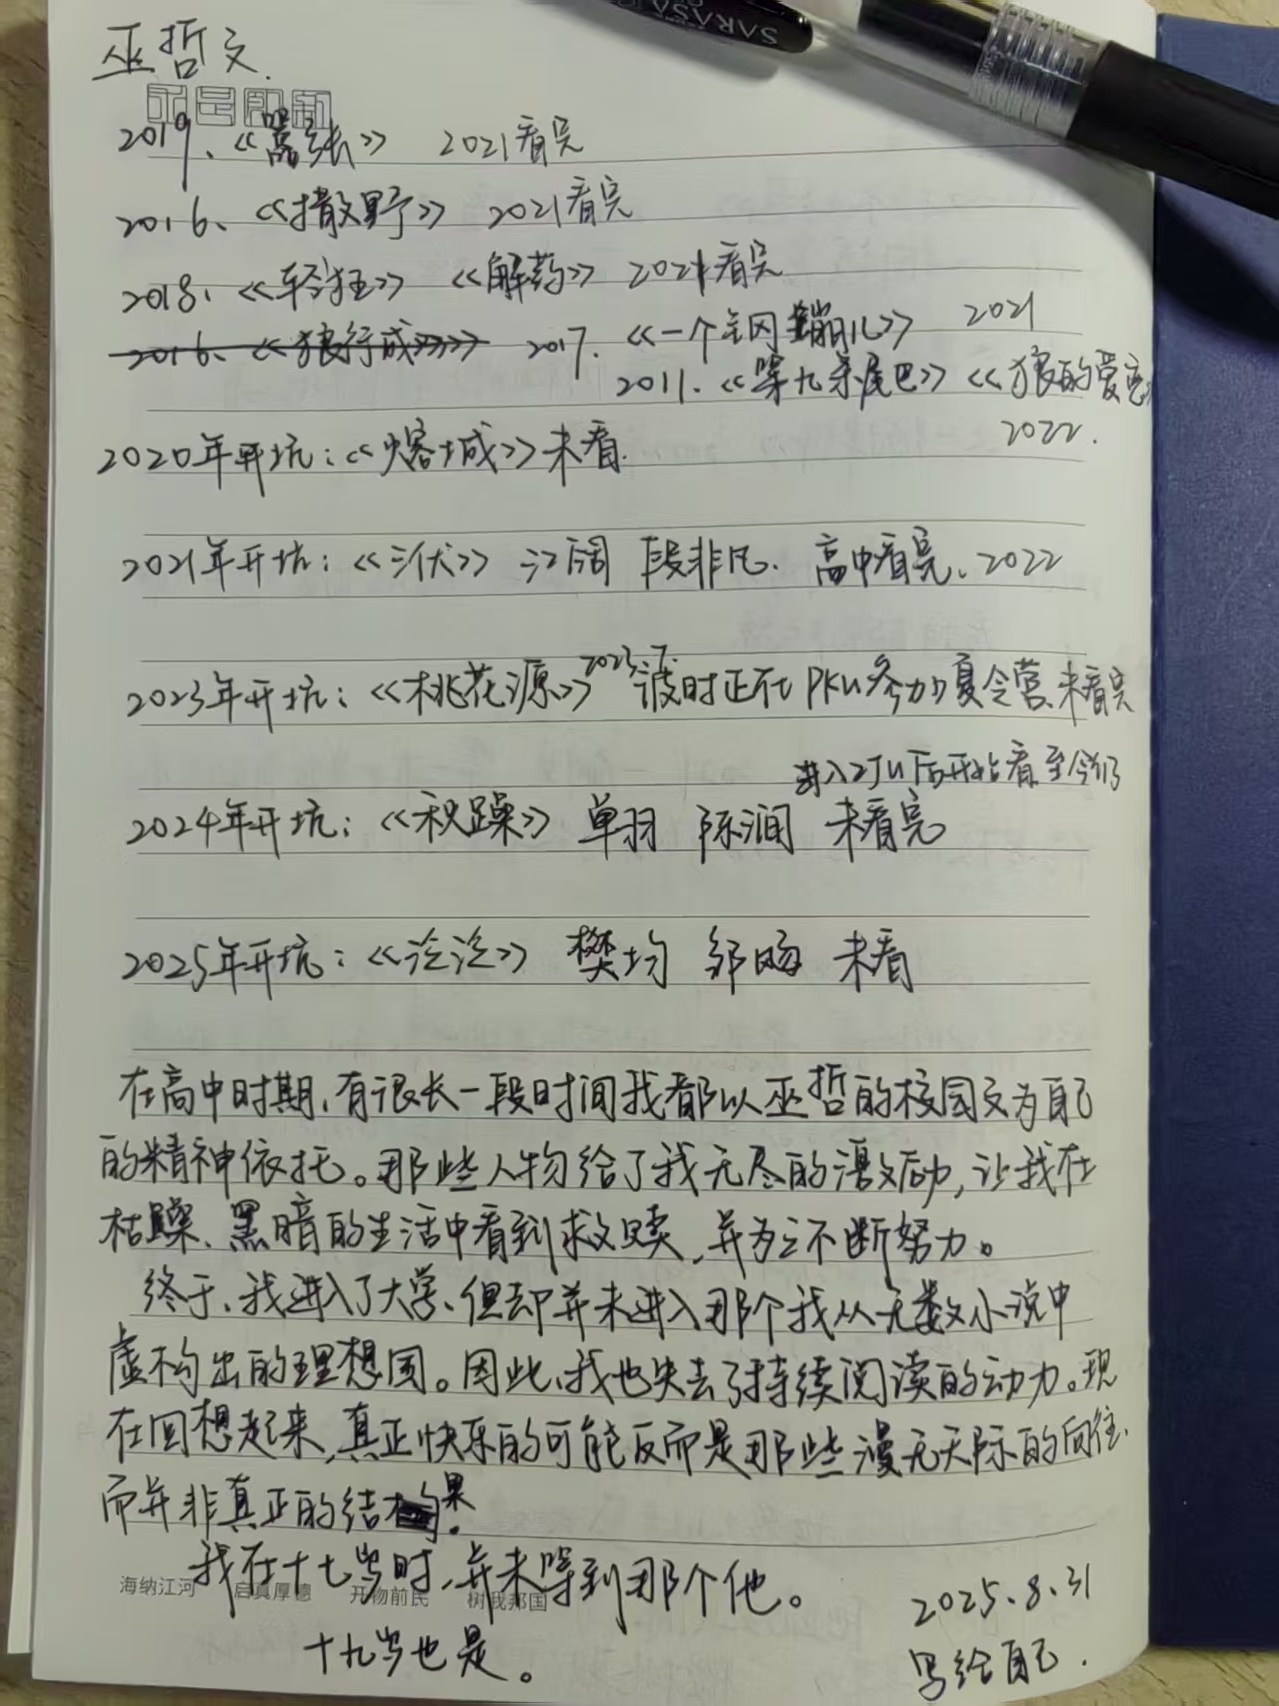 SARASA
巫哲文.
求是即新
2019、《嚣张》 2021看完
2016、《撒野》 2021看完
2018、《轻狂》 《解药》 2021看完
2016、《狼行成双》 2017. 《一个钢镚儿》 2021
2011.《第九条尾巴》《狼的爱恋》
2022.
2020年开坑：《熔城》未看.
2021年开坑：《三伏》 江阔 段非凡. 高中看完、2022
2023年开坑：《桃花源》2023.7. 彼时正在PKU参加夏令营、未看完
进入ZJU后开始看至今仍
2024年开坑：《积躁》 单羽 陈涧 未看完
2025年开坑：《泛泛》 樊均 邹旸 未看
在高中时期，有很长一段时间我都以巫哲的校园文为自己
的精神依托。那些人物给了我无尽的激励，让我在
枯躁、黑暗的生活中看到救赎，并为之不断努力。
终于，我进入了大学、但却并未进入那个我从无数小说中
虚构出的理想国。因此，我也失去了持续阅读的动力。现
在回想起来，真正快乐的可能反而是那些漫无天际的向往、
而并非真正的结果.
我在十七岁时，并未等到那个他。
海纳江河 启真厚德 开物前民 树我邦国
十九岁也是。
2025.8.31
写给自己.